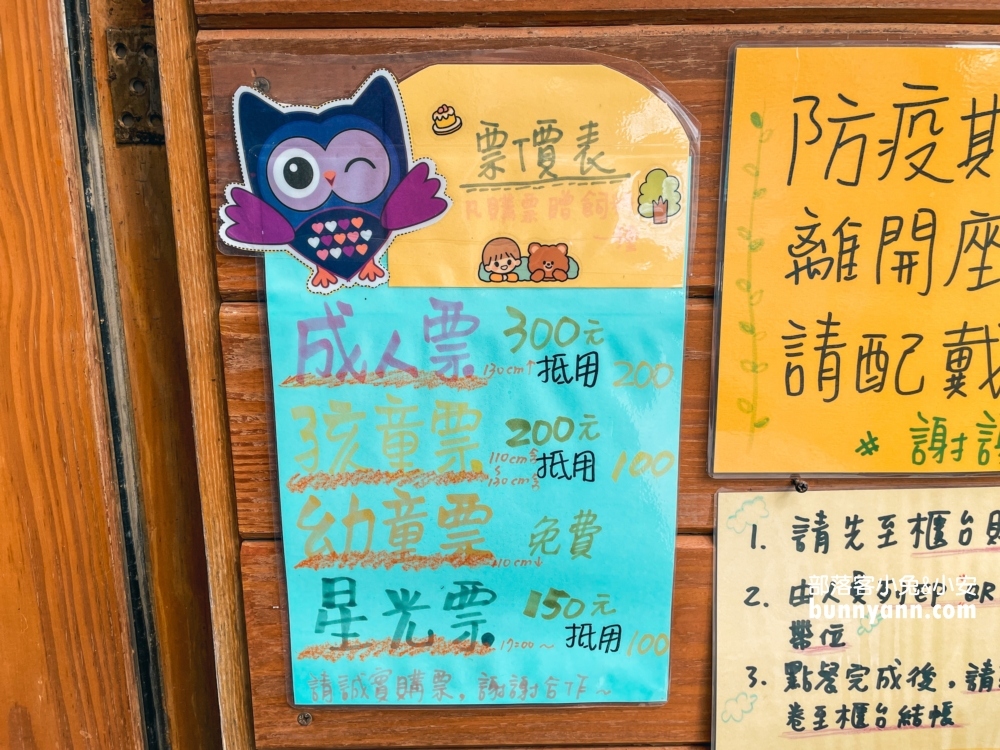 票價表
凡購票贈飼料
一種
成人票 300元
130cm↑ 抵用 200
孩童票 200元
110cm含 抵用 100
~
130cm含
幼童票 免費
110cm↓
星光票 150元
17:00~ 抵用 100
請誠實購票,謝謝合作~
防疫期
離開座
請配戴
* 謝謝
1. 請先至櫃台
2. 由
帶位
3. 點餐完成後,請
卷至櫃台結帳
部落客小兔&小安
bunnyann.com